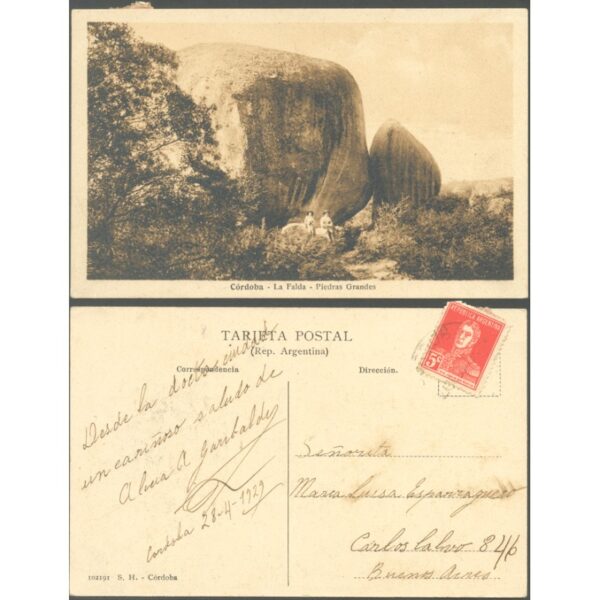 Córdoba - La Falda - Piedras Grandes
TARJETA POSTAL
(Rep. Argentina)
Correspondencia
Dirección.
REPUBLICA ARGENTINA
5c
Desde la docta ciudad
un cariñoso saludo de
A Garibaldi
Cordoba 28-4-1929
Señorita
Maria Luisa
Carlos Calvo 846
Buenos Aires
102191 S. H. - Córdoba